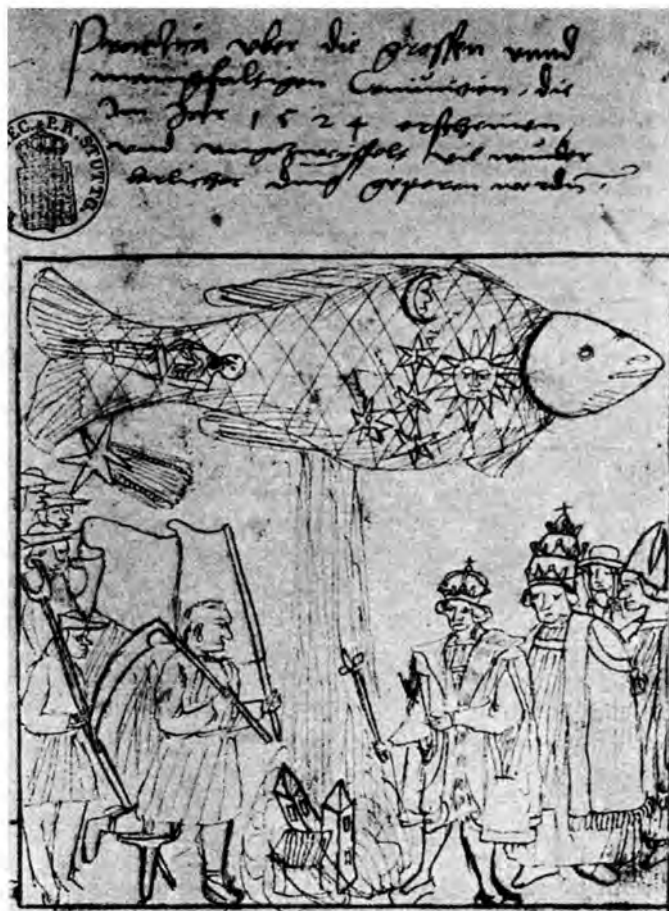 Practica vber die grossen vnnd
manigfaltigen Coniunction, die
Im Jar 1524 erscheinen,
vnd vngezweiffelt vil wunder
barlicher ding geperen werdn.